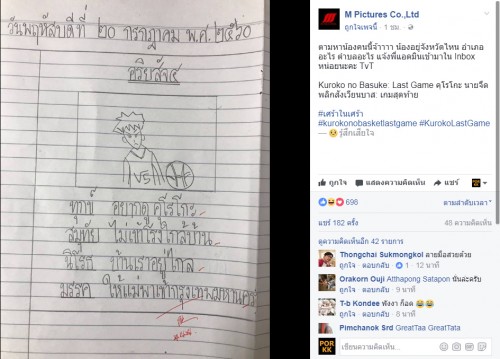 วันพฤหัสบดีที่ ๒๐ กรกฎาคม พ.ศ.๒๕๖๐
อริยสัจ๔
ทุกข์ อยากดูคุโรโกะ
สมุทัย ไม่เข้าโรงใกล้บ้าน
นิโรธ บ้านเราอยู่ไกล
มรรค ให้แม่พาเข้ากรุงเทพมหานคร
M Pictures Co.,Ltd
ถูกใจเพจนี้ · 1 ชม. ·
ตามหาน้องคนนี้จ้าาาา น้องอยู่จังหวัดไหน อำเภอ
อะไร ตำบลอะไร แจ้งพี่แอดมินเข้ามาใน Inbox
หน่อยนะคะ TvT
Kuroko no Basuke: Last Game คุโรโกะ นายจืด
พลิกสังเวียนบาส: เกมสุดท้าย
#เศร้าในเศร้า
#kurokonobasketlastgame #KurokoLastGame
— รู้สึกเสียใจ
ถูกใจ แสดงความคิดเห็น แชร์
698 ตามลำดับเวลา
แชร์ 182 ครั้ง 45 ความคิดเห็น
ดูความคิดเห็นอีก 42 รายการ
Thongchai Sukmongkol ลายมือสวยด้วย
ถูกใจ · ตอบกลับ · 1 · 12 นาที
Orakorn Ouji Atthapong Satapon นั่นล่ะครับ
ถูกใจ · ตอบกลับ · 9 นาที
T-b Kondee ฟังงา ก็อด
ถูกใจ · ตอบกลับ · 8 นาที
Pimchanok Srd GreatTaa GreatTata
เขียนความคิดเห็น...